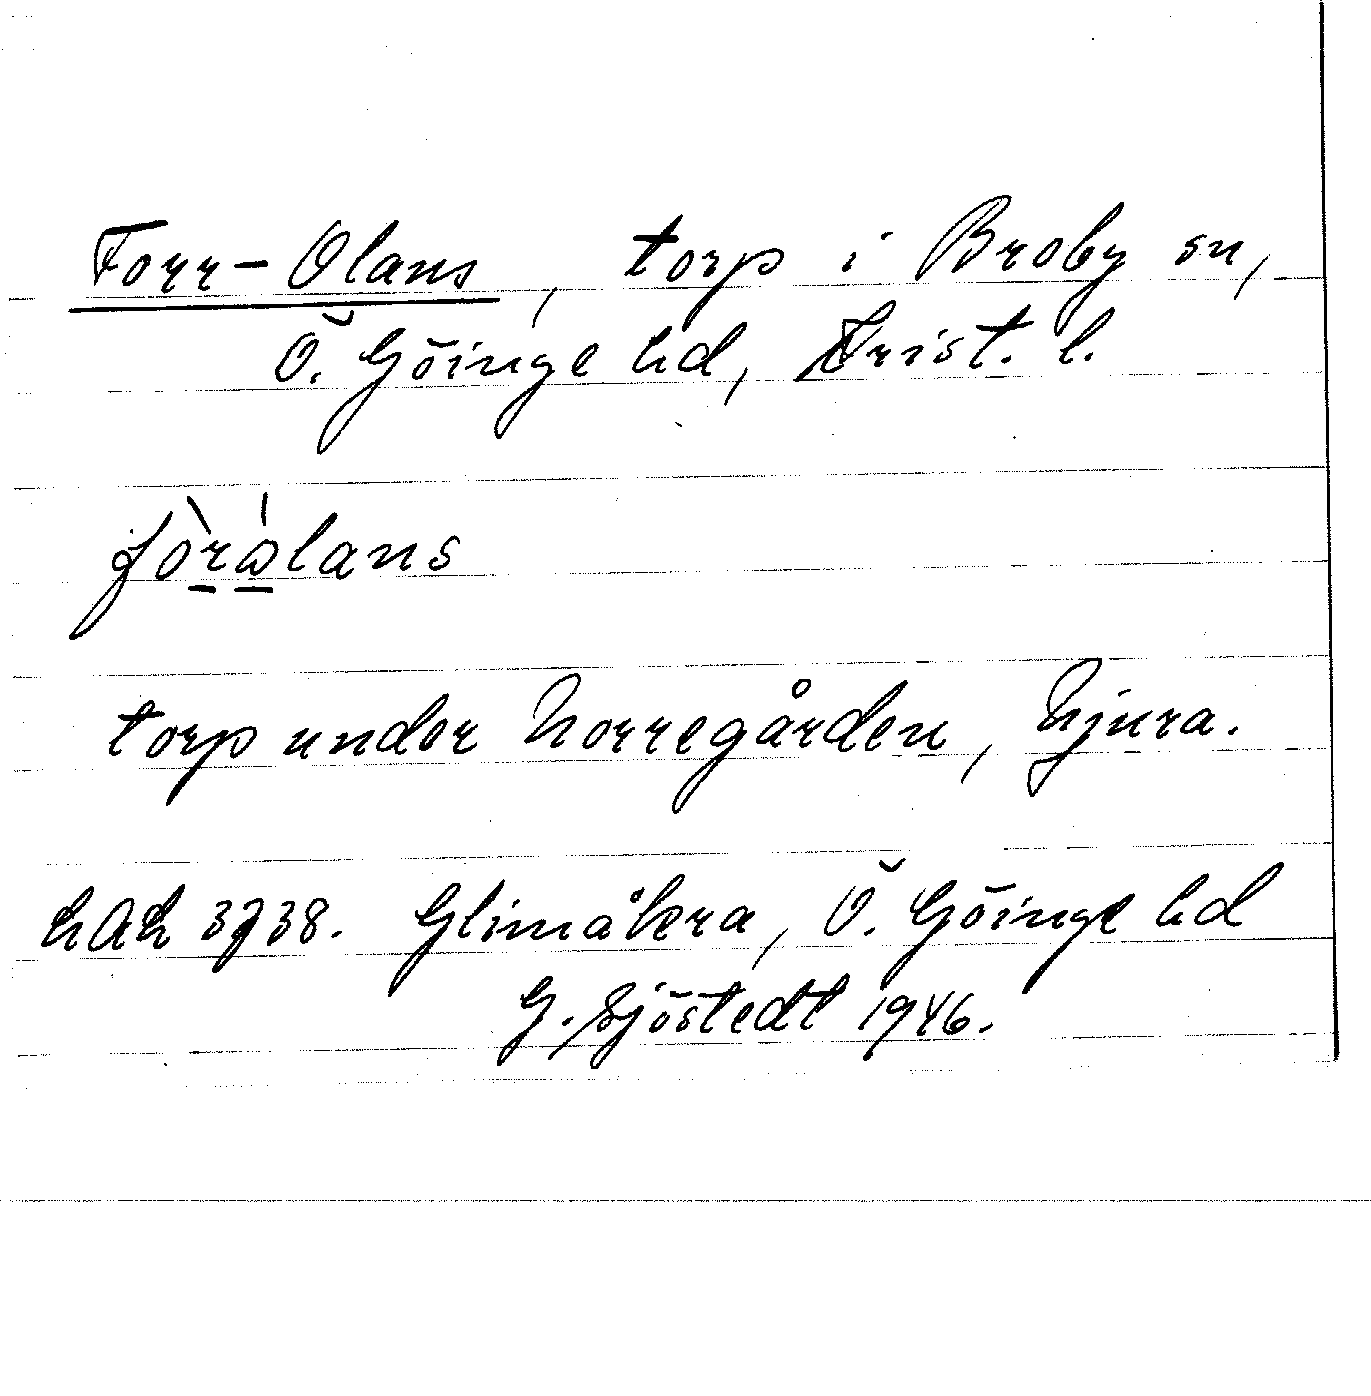 Forr-Olans, torp i Broby sn,
Ö. Göinge hd, Krist. l.
fòrωlans
torp under Norregården, Hjura.
LAL 3738. Glimåkra, Ö. Göinge hd
G. Sjöstedt 1946.